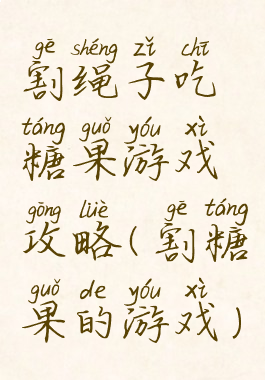 gē shéng zǐ chī
割绳子吃
táng guǒ yóu xì
糖果游戏
gōng lüè gē táng
攻略(割糖
guǒ de yóu xì
果的游戏)